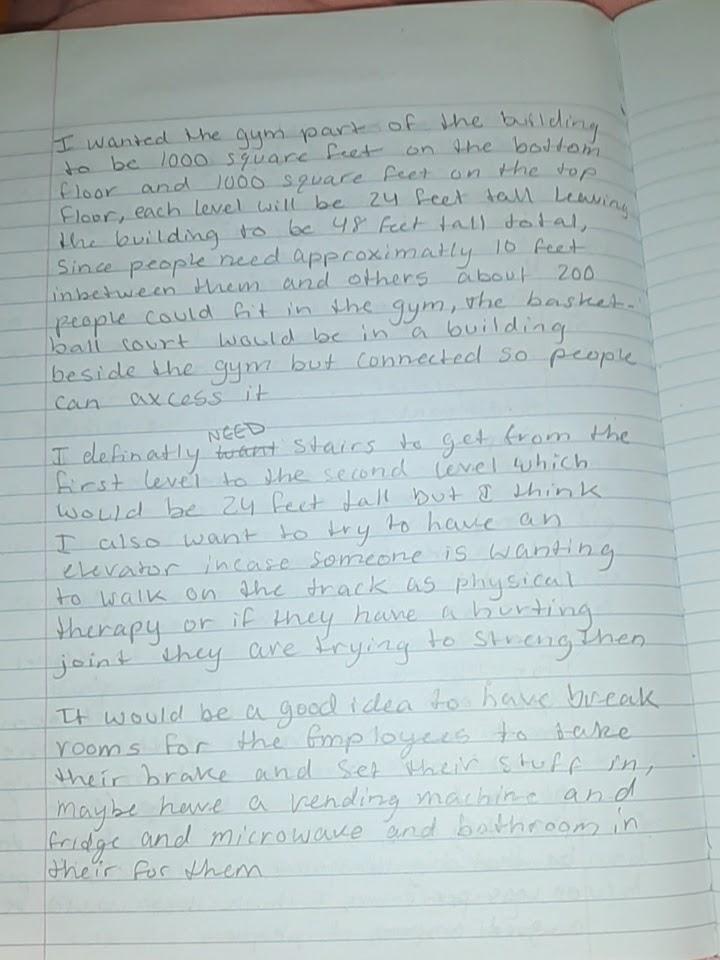 I wanted the gym part of the building
to be 1000 square feet on the bottom
floor and 1000 square feet on the top
floor, each level will be 24 feet tall leaving
the building to be 48 feet tall total,
since people need approximatly 10 feet
inbetween them and others about 200
people could fit in the gym, the basket-
ball court would be in a building
beside the gym but connected so people
can axcess it
NEED
I definatly want stairs to get from the
first level to the second level which
would be 24 feet tall but I think
I also want to try to have an
elevator incase someone is wanting
to walk on the track as physical
therapy or if they have a hurting
joint they are trying to strengthen
It would be a good idea to have break
rooms for the Employees to take
their brake and set their stuff in,
maybe have a vending machine and
fridge and microwave and bathroom in
their for them